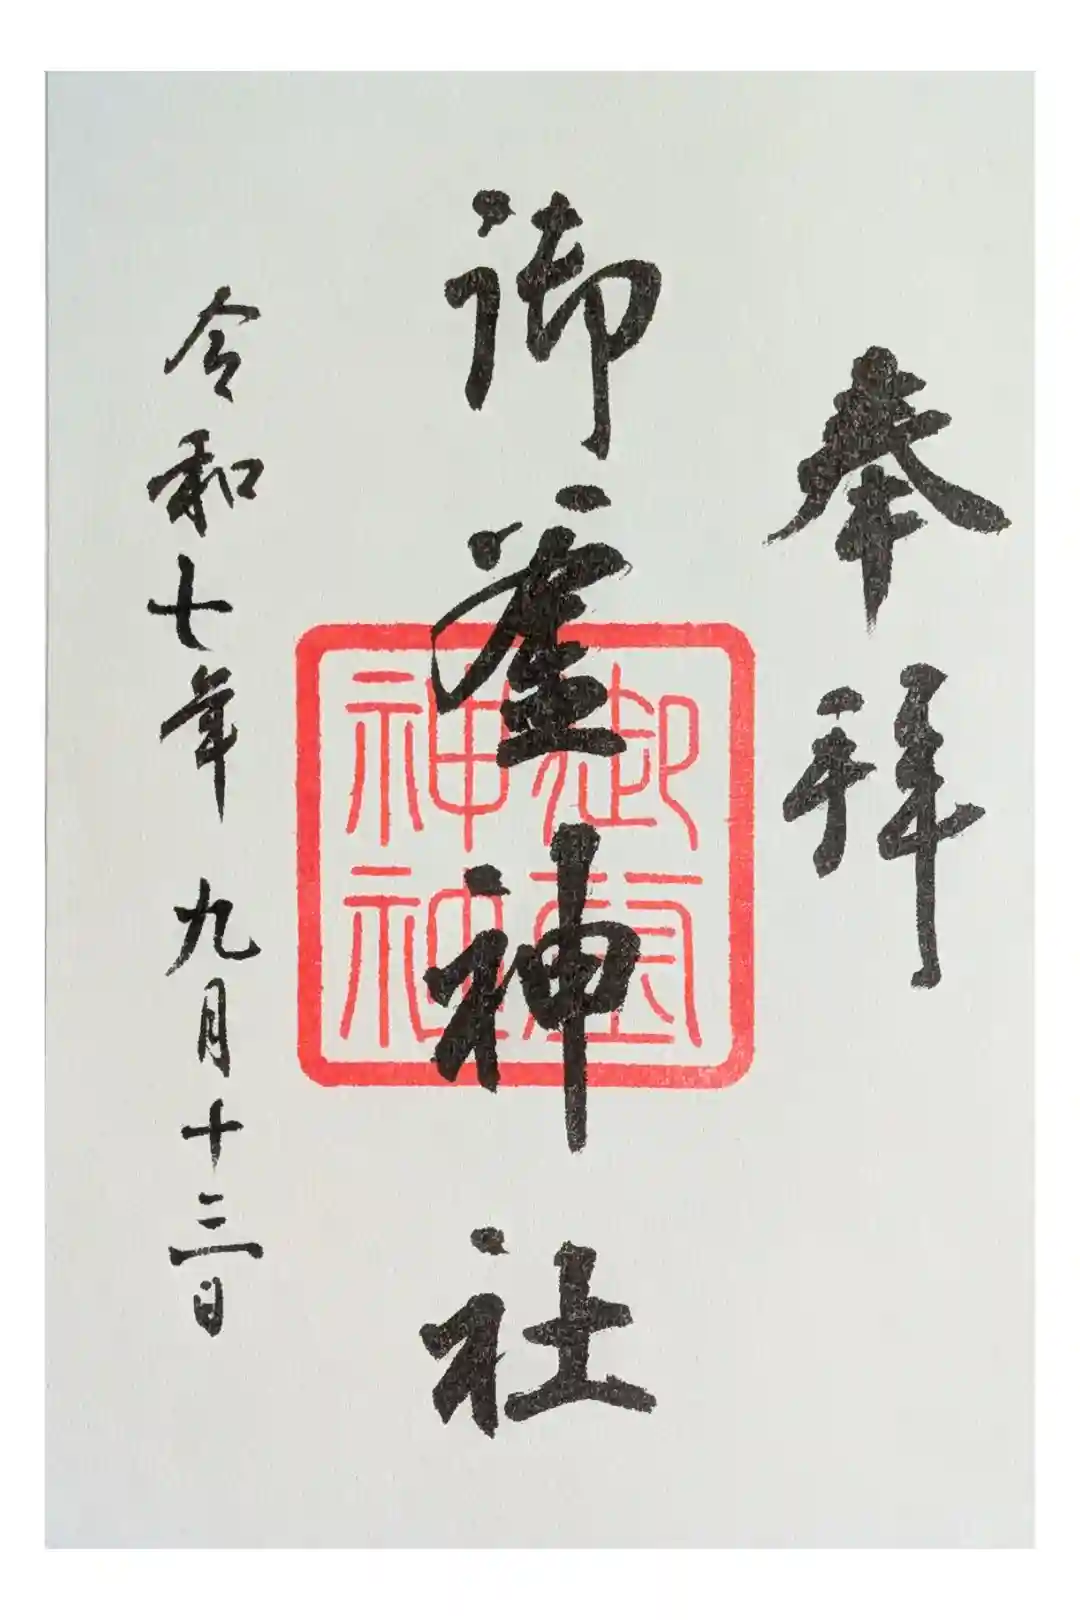 奉拝
御釜神社
御
神社
令和七年 九月十三日